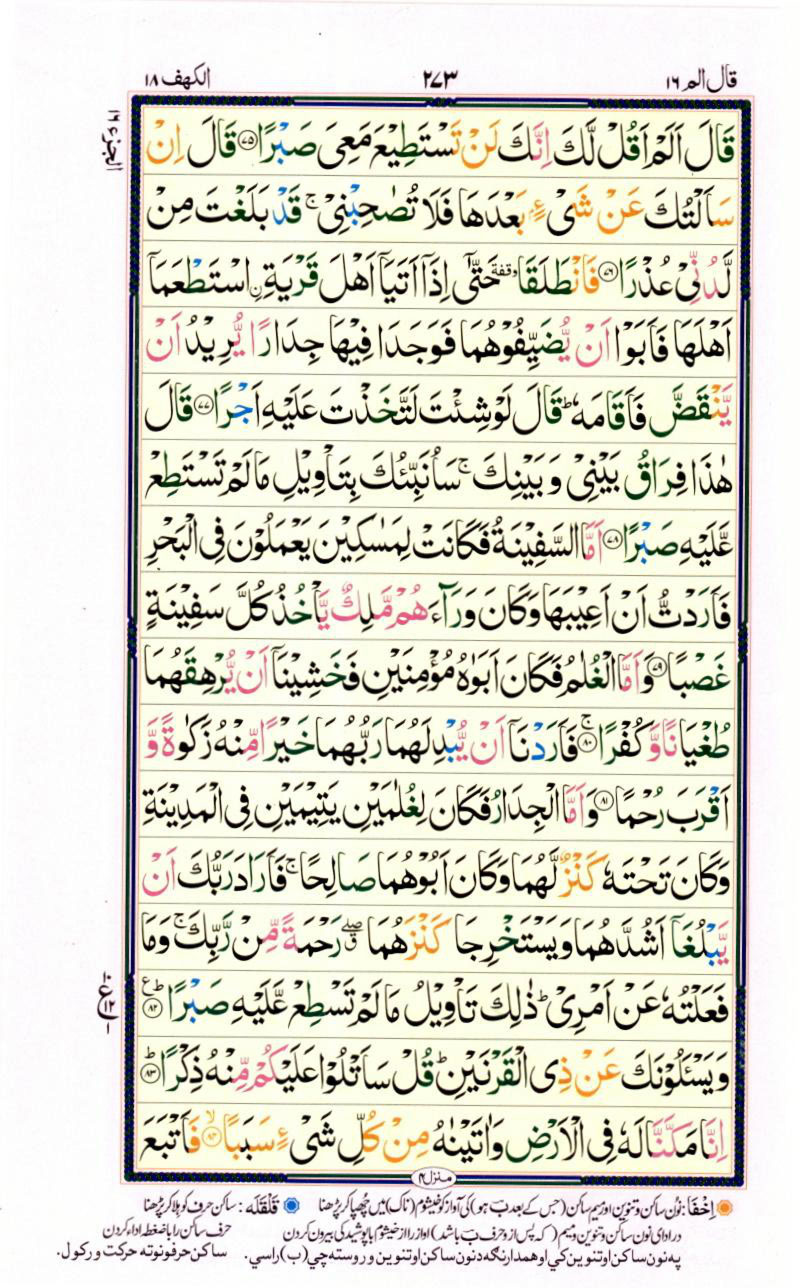 قال الم ١٦
٢٧٣
الكهف ١٨
الجزء ١٦
قَالَ اَلَمْ اَقُلْ لَّكَ اِنَّكَ لَنْ تَسْتَطِيْعَ مَعِىَ صَبْرًا ﴿٧٥﴾ قَالَ اِنْ
سَاَلْتُكَ عَنْ شَىْءٍۭ بَعْدَهَا فَلَا تُصٰحِبْنِىْ ۚ قَدْ بَلَغْتَ مِنْ
لَّدُنِّىْ عُذْرًا ﴿٧٦﴾ فَانْطَلَقَا وقفة حَتّٰٓى اِذَاۤ اَتَيَاۤ اَهْلَ قَرْيَةِ ن اسْتَطْعَمَاۤ
اَهْلَهَا فَاَبَوْا اَنْ يُّضَيِّفُوْهُمَا فَوَجَدَا فِيْهَا جِدَارًا يُّرِيْدُ اَنْ
يَّنْقَضَّ فَاَقَامَهٗ ؕ قَالَ لَوْ شِئْتَ لَتَّخَذْتَ عَلَيْهِ اَجْرًا ﴿٧٧﴾ قَالَ
هٰذَا فِرَاقُ بَيْنِىْ وَ بَيْنِكَ ۚ سَاُنَبِّئُكَ بِتَاْوِيْلِ مَا لَمْ تَسْتَطِعْ
عَّلَيْهِ صَبْرًا ﴿٧٨﴾ اَمَّا السَّفِيْنَةُ فَكَانَتْ لِمَسٰكِيْنَ يَعْمَلُوْنَ فِى الْبَحْرِ
فَاَرَدْتُّ اَنْ اَعِيْبَهَا وَكَانَ وَرَآءَهُمْ مَّلِكٌ يَّاْخُذُ كُلَّ سَفِيْنَةٍ
غَصْبًا ﴿٧٩﴾ وَاَمَّا الْغُلٰمُ فَكَانَ اَبَوٰهُ مُؤْمِنَيْنِ فَخَشِيْنَاۤ اَنْ يُّرْهِقَهُمَا
طُغْيَانًا وَّكُفْرًا ۚ ﴿٨٠﴾ فَاَرَدْنَاۤ اَنْ يُّبْدِلَهُمَا رَبُّهُمَا خَيْرًا مِّنْهُ زَكٰوةً وَّ
اَقْرَبَ رُحْمًا ﴿٨١﴾ وَاَمَّا الْجِدَارُ فَكَانَ لِغُلٰمَيْنِ يَتِيْمَيْنِ فِى الْمَدِيْنَةِ
وَكَانَ تَحْتَهٗ كَنْزٌ لَّهُمَا وَكَانَ اَبُوْهُمَا صَالِحًا ۚ فَاَرَادَ رَبُّكَ اَنْ
يَّبْلُغَاۤ اَشُدَّهُمَا وَيَسْتَخْرِجَا كَنْزَهُمَا ۖ رَحْمَةً مِّنْ رَّبِّكَ ۚ وَمَا
فَعَلْتُهٗ عَنْ اَمْرِىْ ؕ ذٰلِكَ تَاْوِيْلُ مَا لَمْ تَسْطِعْ عَّلَيْهِ صَبْرًا ؕ ﴿٨٢﴾
وَيَسْـَٔلُوْنَكَ عَنْ ذِى الْقَرْنَيْنِ ؕ قُلْ سَاَتْلُوْا عَلَيْكُمْ مِّنْهُ ذِكْرًا ؕ ﴿٨٣﴾
اِنَّا مَكَّنَّا لَهٗ فِى الْاَرْضِ وَاٰتَيْنٰهُ مِنْ كُلِّ شَىْءٍ سَبَبًا ۙ ﴿٨٤﴾ فَاَتْبَعَ
منزل ٤
اِخْفَا: نون ساکن و تنوین اور میم ساکن (جس کے بعد ب ہو) کی آواز کو خیشوم (ناک) میں چھپا کر پڑھنا
قَلْقَلَه: ساکن حرف کو ہلا کر پڑھنا
در ادای نون ساکن و تنوین و میم (که پس از و حرف ب باشد) اواز را از خیشوم با پوشیدگی بیرون کردن
حرف ساکن را با ضغط اداء کردن
په نون ساکن او تنوین کي او همدارنګه د نون ساکن او تنوین وروسته چي (ب) راسي.
ساکن حرفونو ته حرکت ورکول.